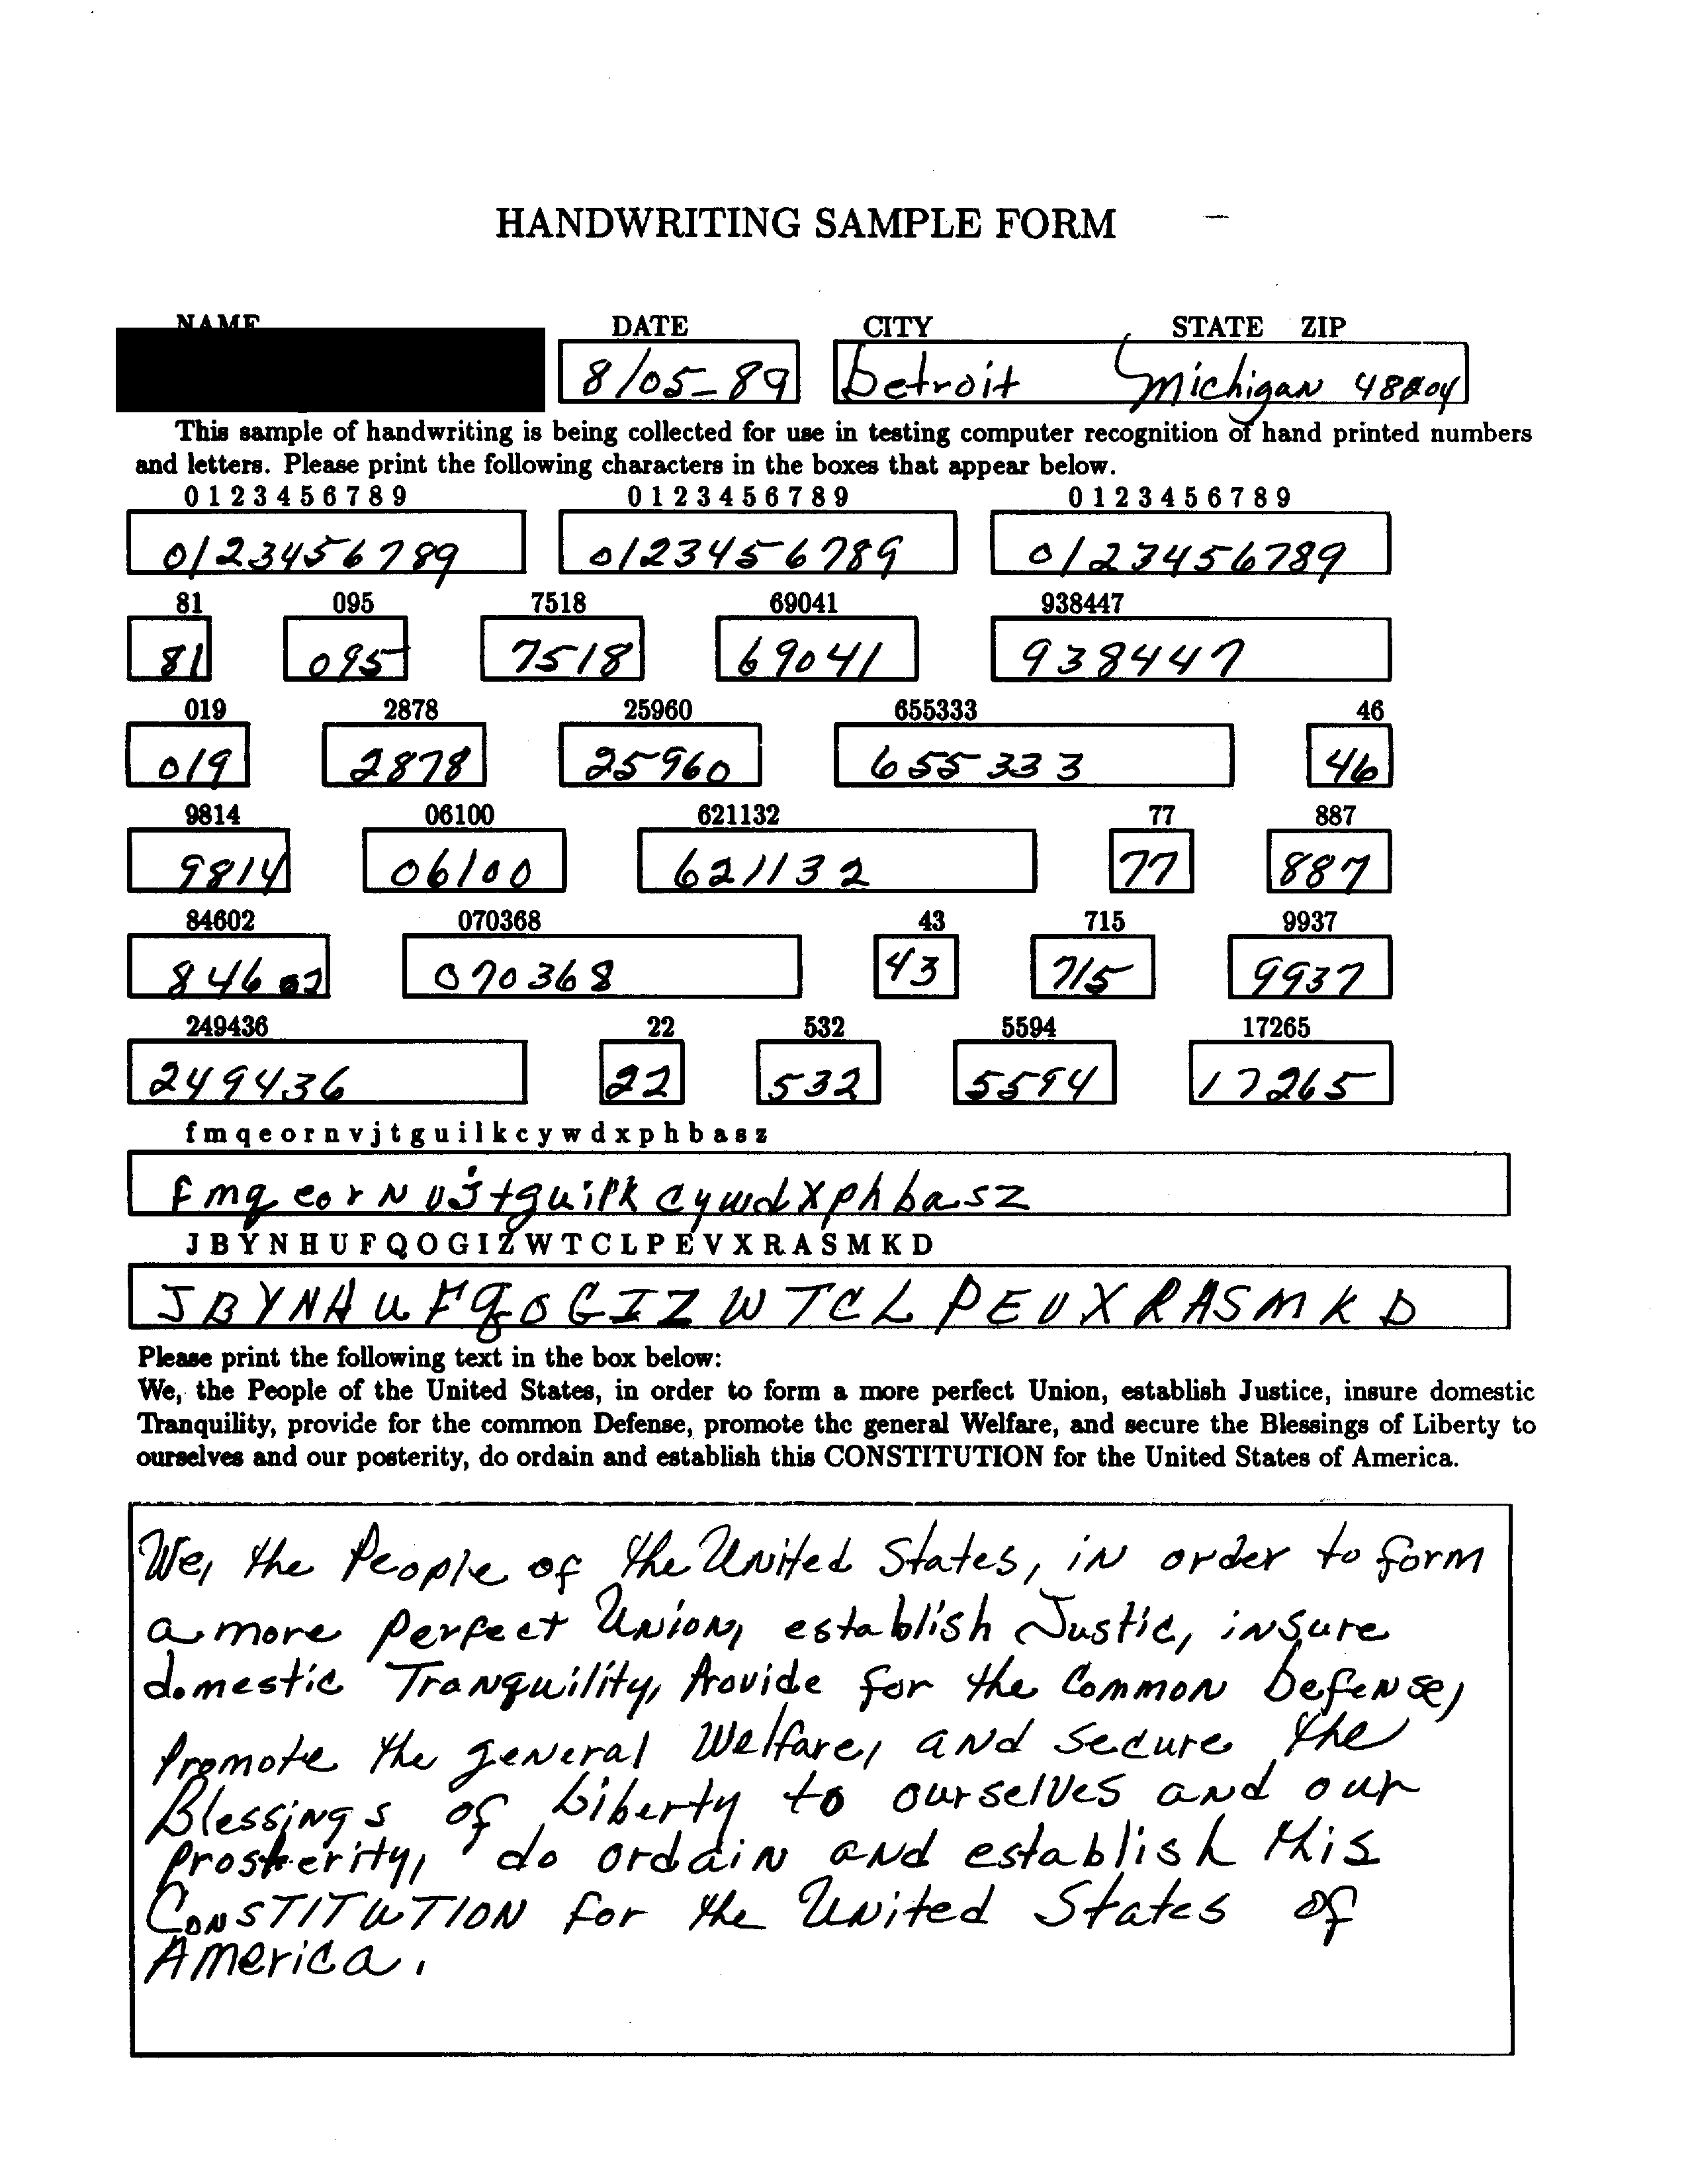 HANDWRITING SAMPLE FORM
NAME DATE CITY STATE ZIP
8/05-89 Detroit Michigan
This sample of handwriting is being collected for use in testing computer recognition of hand printed numbers
and letters. Please print the following characters in the boxes that appear below.
0 1 2 3 4 5 6 7 8 9 0 1 2 3 4 5 6 7 8 9 0 1 2 3 4 5 6 7 8 9
0123456789 0123456789 0123456789
81 095 7518 69041 938447
81 095 7518 69041 938447
019 2878 25960 655333 46
019 2878 25960 655333 46
9814 06100 621132 77 887
9814 06100 621132 77 887
84602 070368 43 715 9937
84602 070368 43 715 9937
249436 22 532 5594 17265
249436 22 532 5594 17265
f m q e o r n v j t g u i l k c y w d x p h b a s z
f m q e o r N v j t g u i l k c y w d x p h b a s z
J B Y N H U F Q O G I Z W T C L P E V X R A S M K D
J B Y N H U F Q O G I Z W T C L P E V X R A S M K D
Please print the following text in the box below:
We, the People of the United States, in order to form a more perfect Union, establish Justice, insure domestic
Tranquility, provide for the common Defense, promote the general Welfare, and secure the Blessings of Liberty to
ourselves and our posterity, do ordain and establish this CONSTITUTION for the United States of America.
We, the People of the United States, in order to form
a more perfect Union, establish Justic, insure
domestic Tranquility, Provide for the Common Defense,
Promote the general Welfare, and secure the
Blessings of Liberty to ourselves and our
Prosterity, do ordain and establish this
CONSTITUTION for the United States of
America.